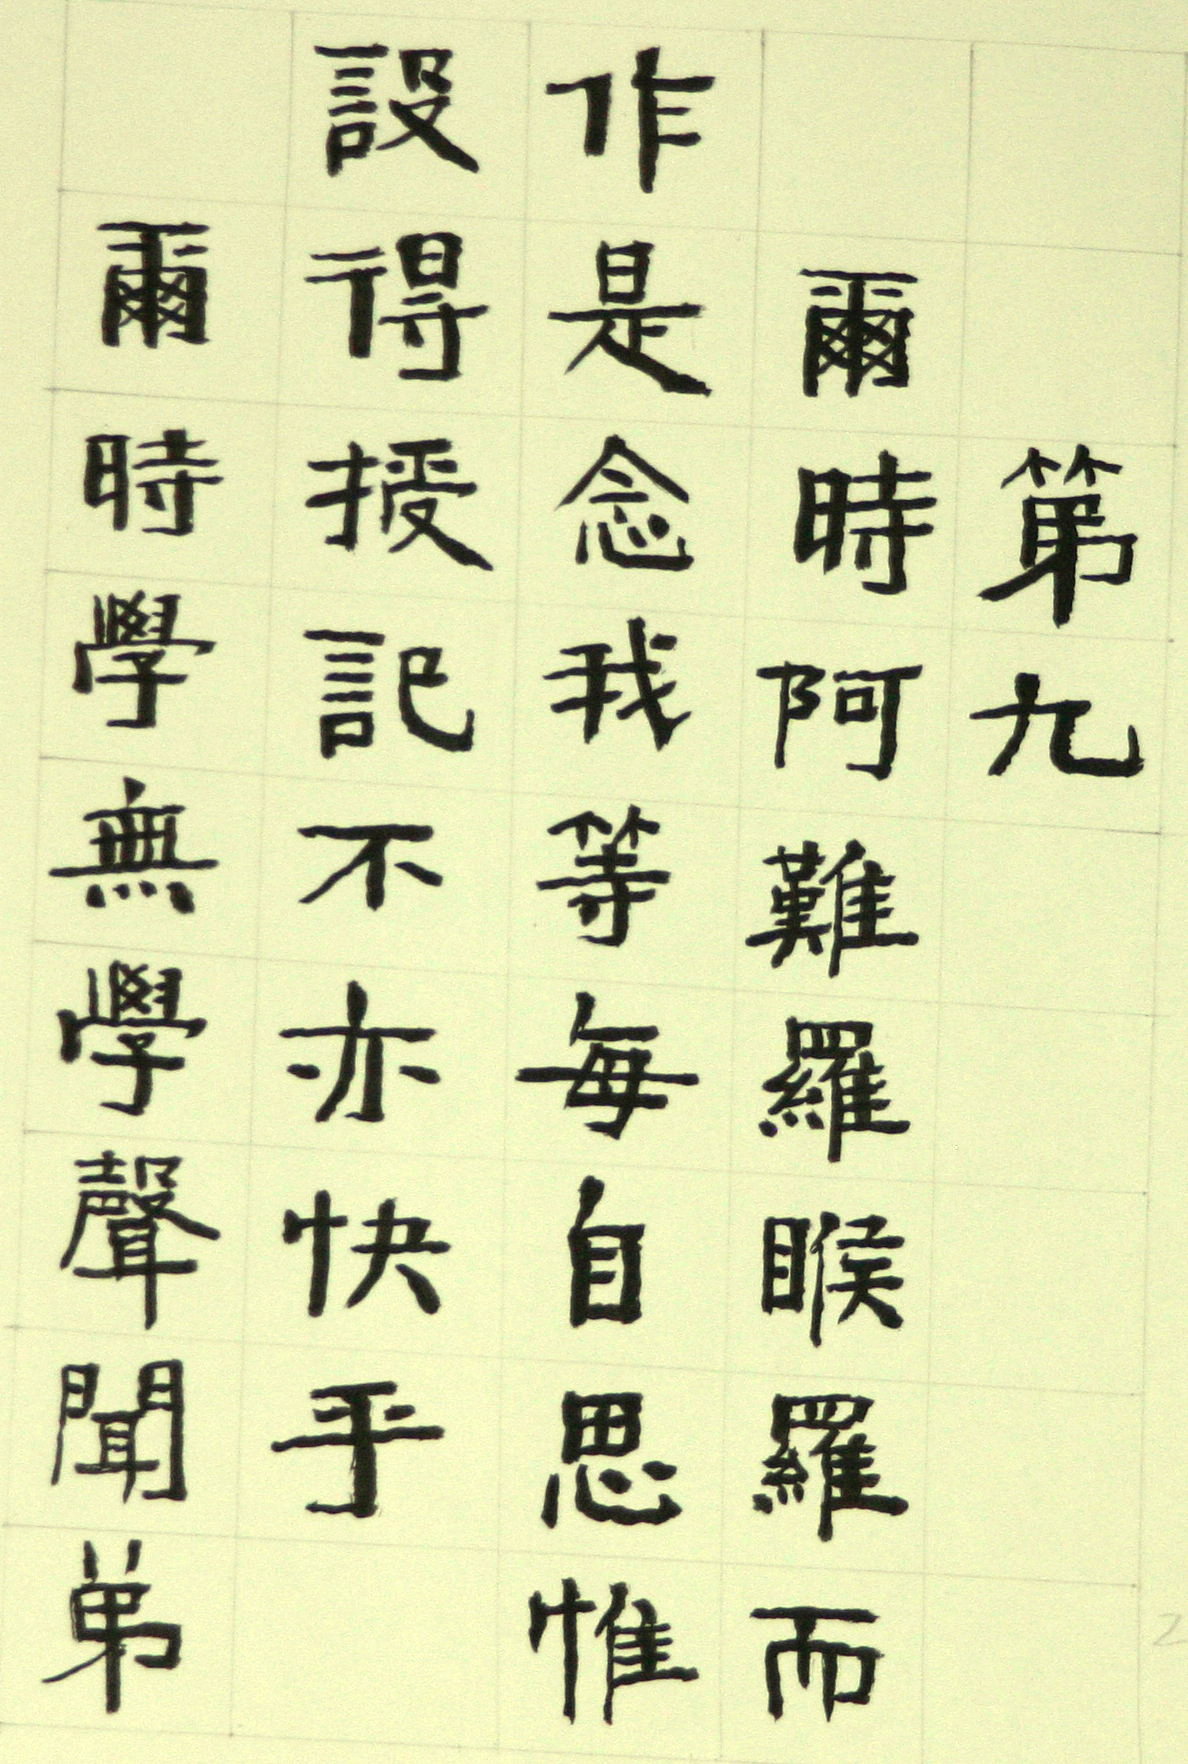 第九
爾時阿難羅睺羅而
作是念我等每自思惟
設得授記不亦快乎
爾時學無學聲聞弟
2